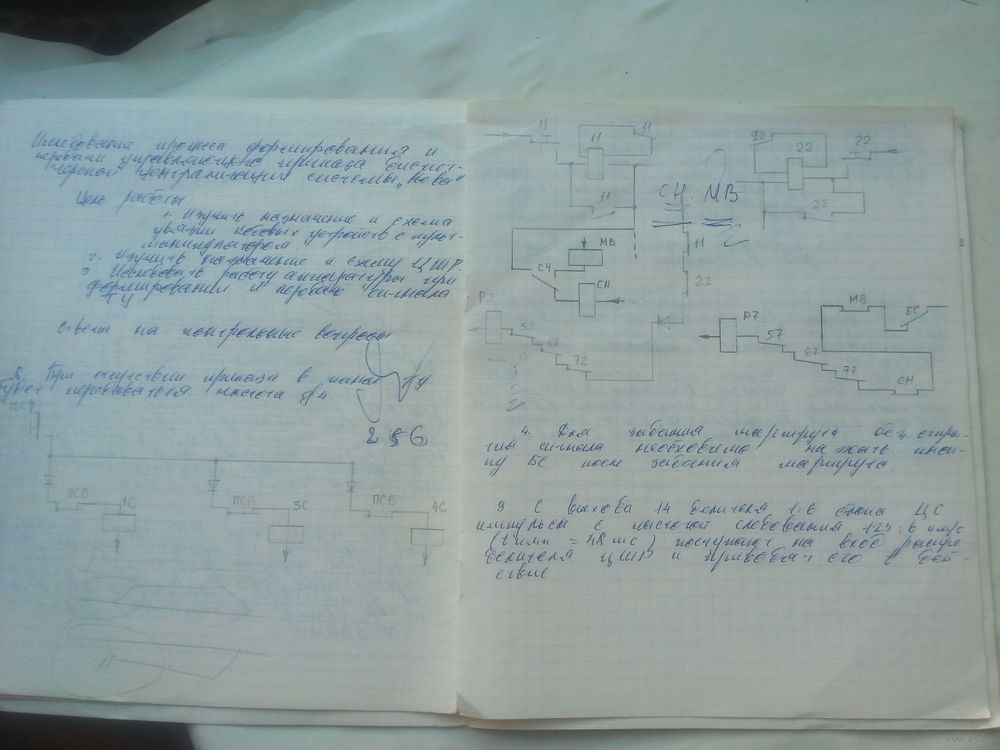 Исследование процесса формирования и
передачи управляющего приказа диспет-
черской централизации системы „Нева"
Цель работы
1. Изучить назначение и схема
увязки постовых устройств с пульт-
манипулятором
2. Изучить назначение и схему ЦШР.
3. Исследовать работу аппаратуры при
формировании и передаче сигнала
ТУ
Ответы на контрольные вопросы
8. При отсутствии приказа в канал ТУ
будет передаваться частота f4
256
ПСВ 1С ПСВ 3С ПСВ 4С
11 11 11
22 22
11
22
СН. МВ
МВ
СЧ
СН
11
22
52
62
72
Р7
57
67
77
МВ
БС
СН
4. Для задания маршрута без откры-
тия сигнала необходимо нажать кноп-
ку БС после задания маршрута
9 С выхода 14 делителя 1:6 блока ЦС
импульсы с частотой следования 125:6 имп/с
(1 имп = 48 мс) поступают на вход распре-
делителя ЦШР и приводят его в дей-
ствие